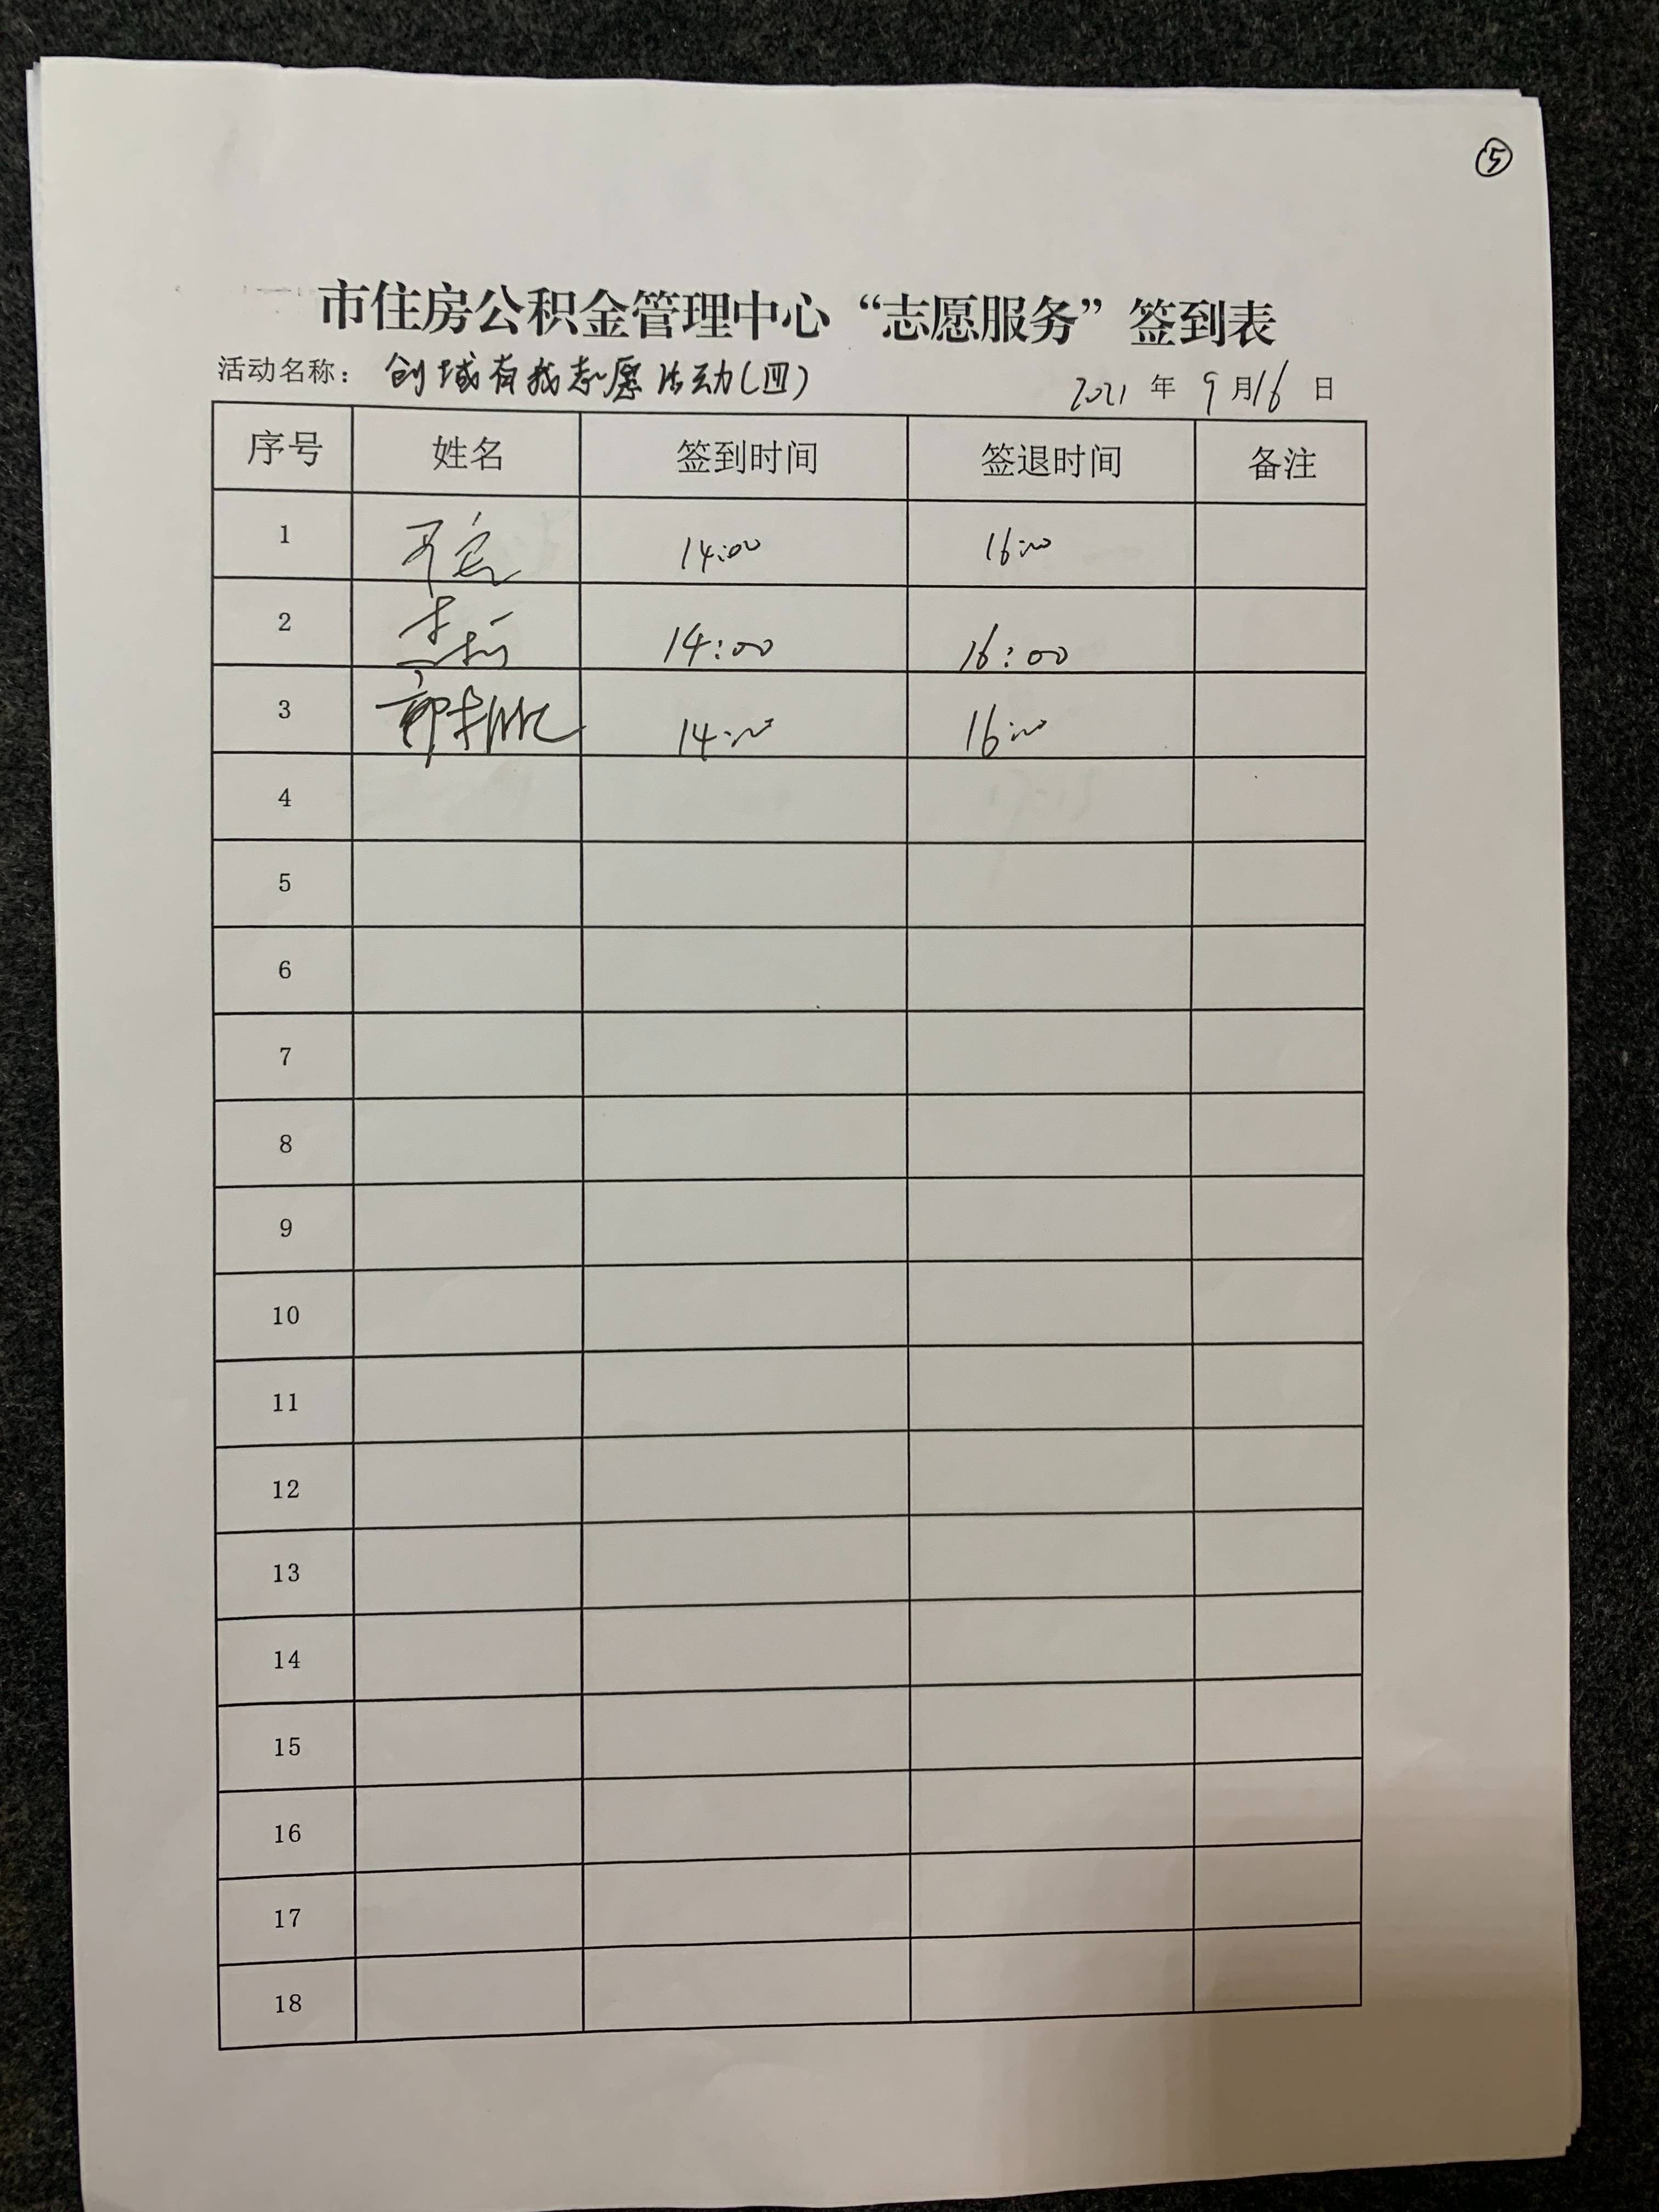 ⑤
市住房公积金管理中心“志愿服务”签到表
活动名称：创城有我志愿活动(四) 2021 年 9 月 16 日
序号 姓名 签到时间 签退时间 备注
1 14:00 16:00
2 14:00 16:00
3 14:00 16:00
4
5
6
7
8
9
10
11
12
13
14
15
16
17
18